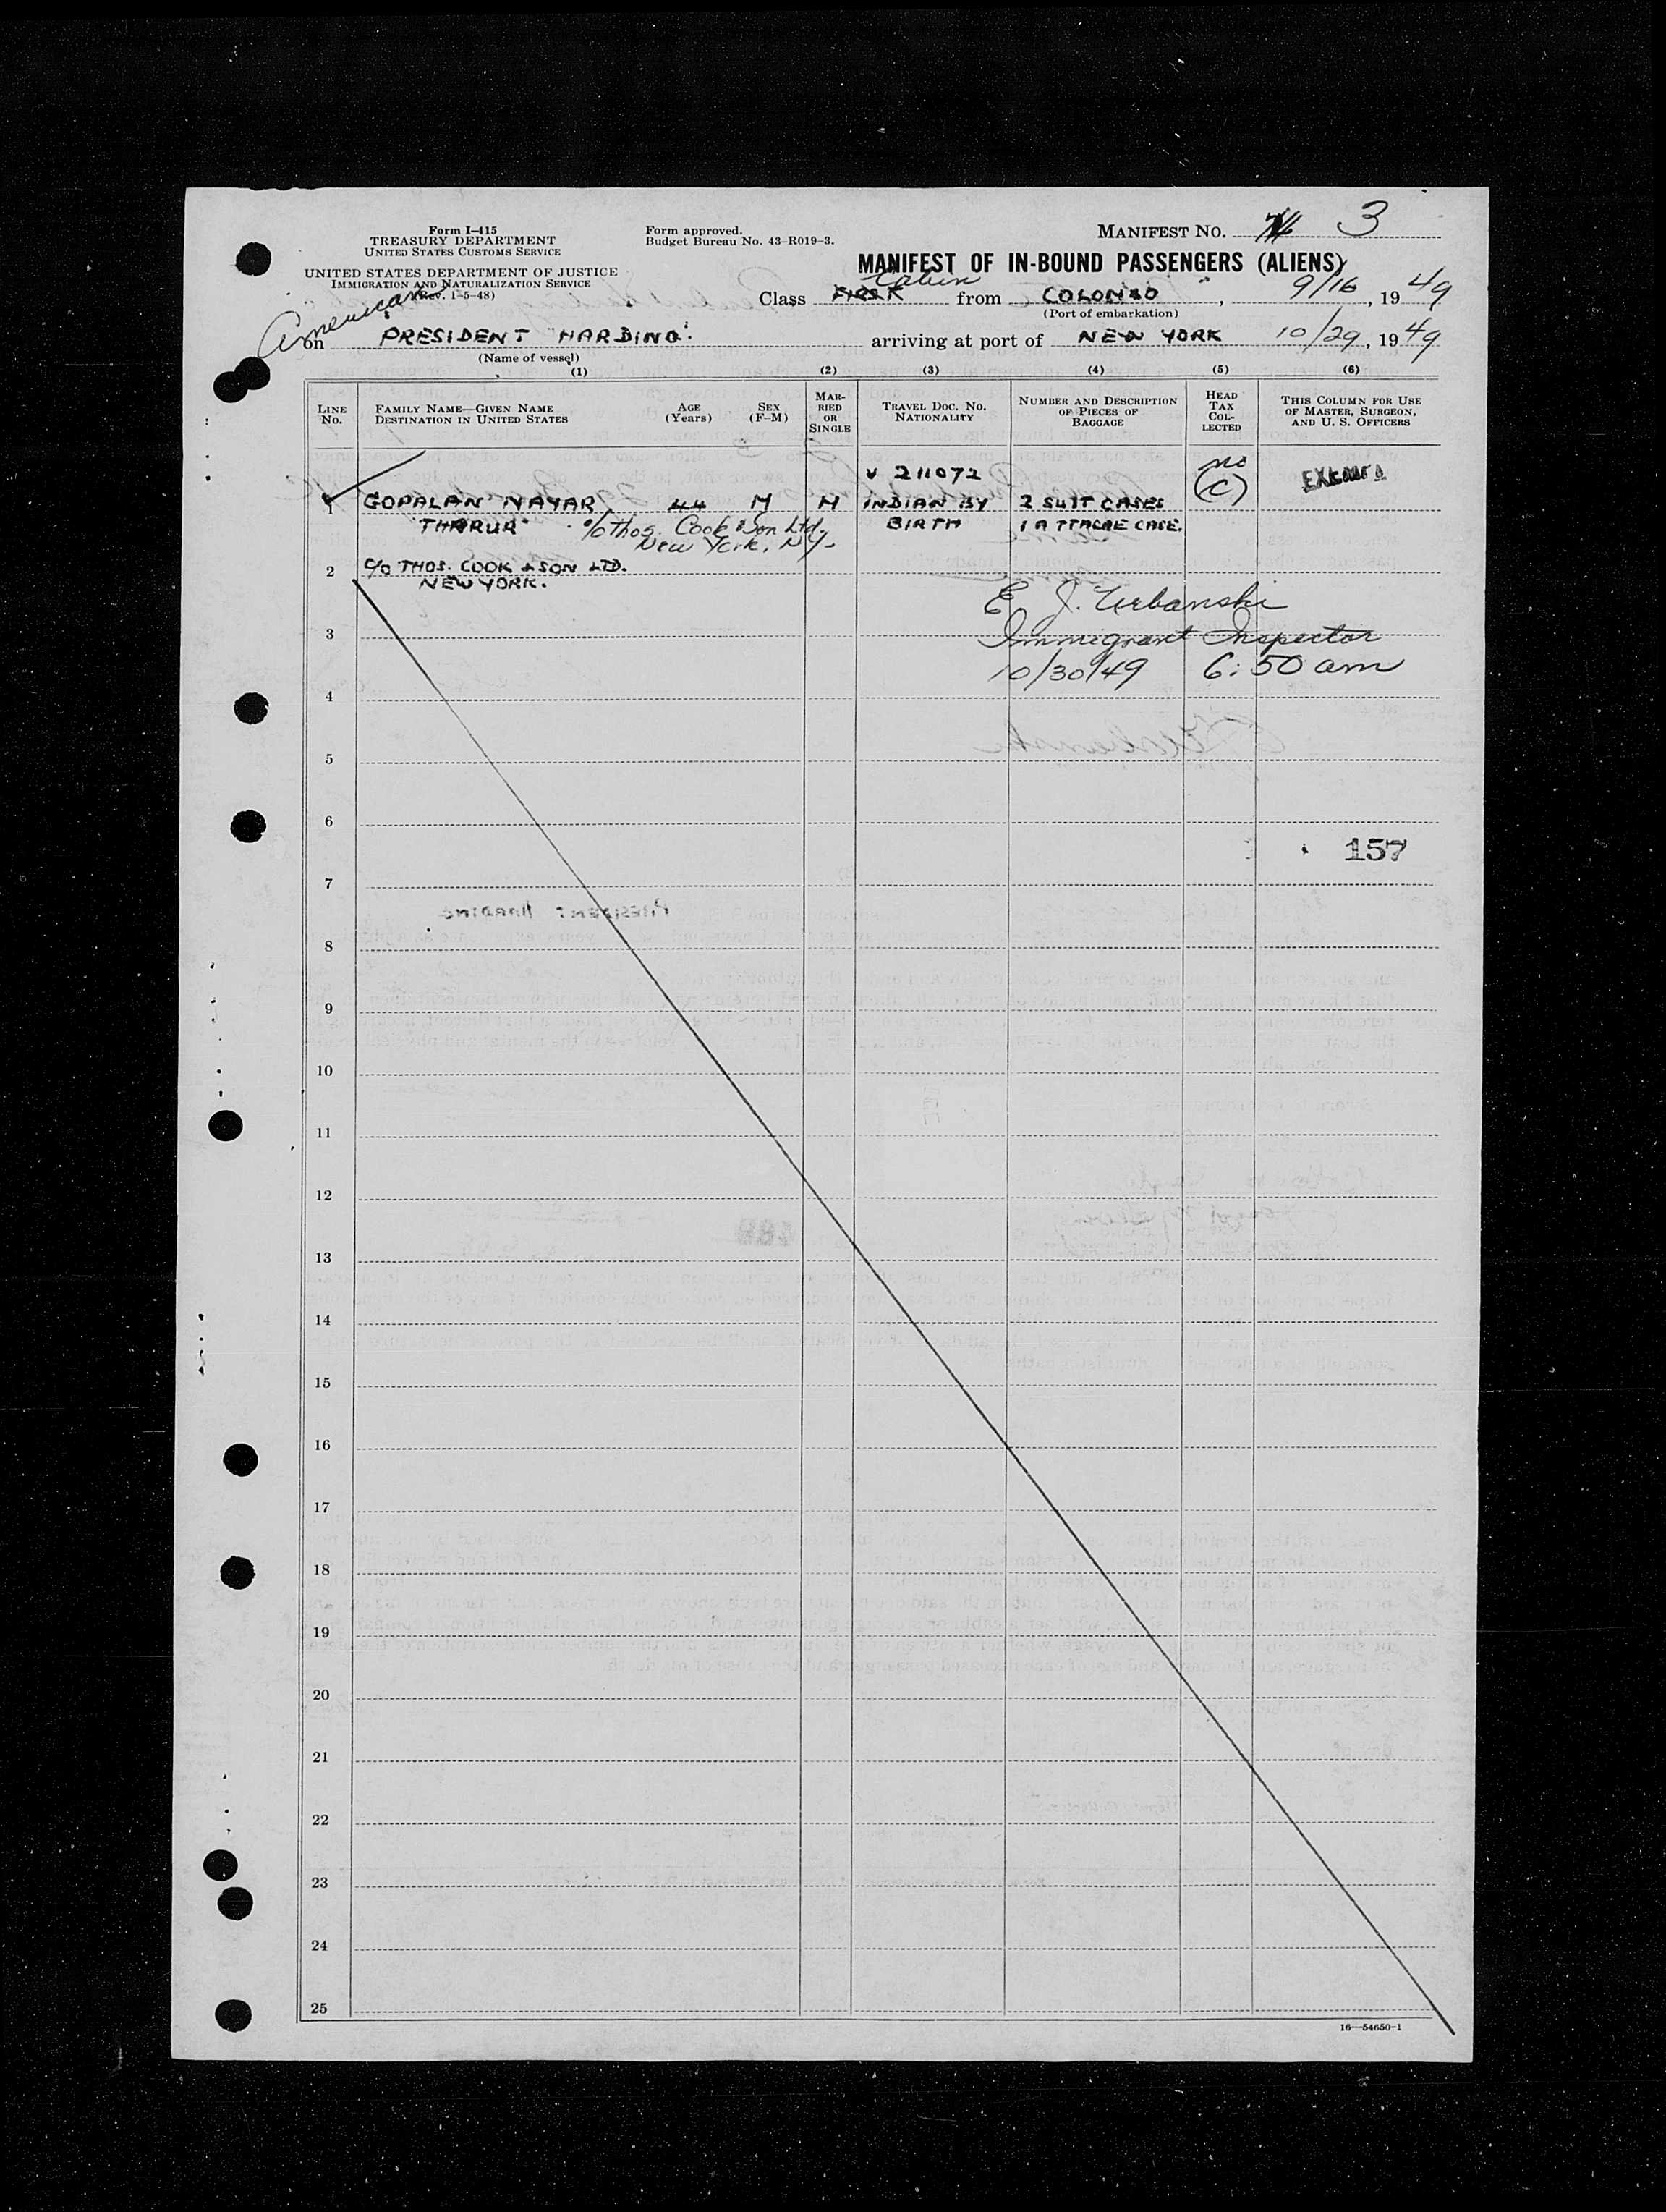 Form I-415
TREASURY DEPARTMENT
UNITED STATES CUSTOMS SERVICE
UNITED STATES DEPARTMENT OF JUSTICE
IMMIGRATION AND NATURALIZATION SERVICE
(Rev. 1-5-48)
Form approved.
Budget Bureau No. 43-R019-3.
MANIFEST NO. 3
MANIFEST OF IN-BOUND PASSENGERS (ALIENS)
Class FIRST Cabin from COLOMBO, 9/16, 1949
(Port of embarkation)
American
on PRESIDENT HARDING. arriving at port of NEW YORK 10/29, 1949
(Name of vessel)
(1) (2) (3) (4) (5) (6)
LINE No. FAMILY NAME—GIVEN NAME DESTINATION IN UNITED STATES AGE (Years) SEX (F-M) MARRIED OR SINGLE TRAVEL DOC. NO. NATIONALITY NUMBER AND DESCRIPTION OF PIECES OF BAGGAGE HEAD TAX COLLECTED THIS COLUMN FOR USE OF MASTER, SURGEON, AND U. S. OFFICERS
V 211072 no (C)
1 GOPALAN NAYAR, 44 M M INDIAN BY 2 SUIT CASES
"THARUR" c/o Thos. Cook & Son Ltd, BIRTH 1 ATTACHE CASE.
New York, NY.
2 C/O THOS. COOK & SON LTD.
NEW YORK.
E. J. Urbanski
3 Immigrant Inspector
10/30/49 6:50 am
4
5
6
157
7
PRESIDENT HARDING
8
9
10
11
12
13
14
15
16
17
18
19
20
21
22
23
24
25
16—54650-1